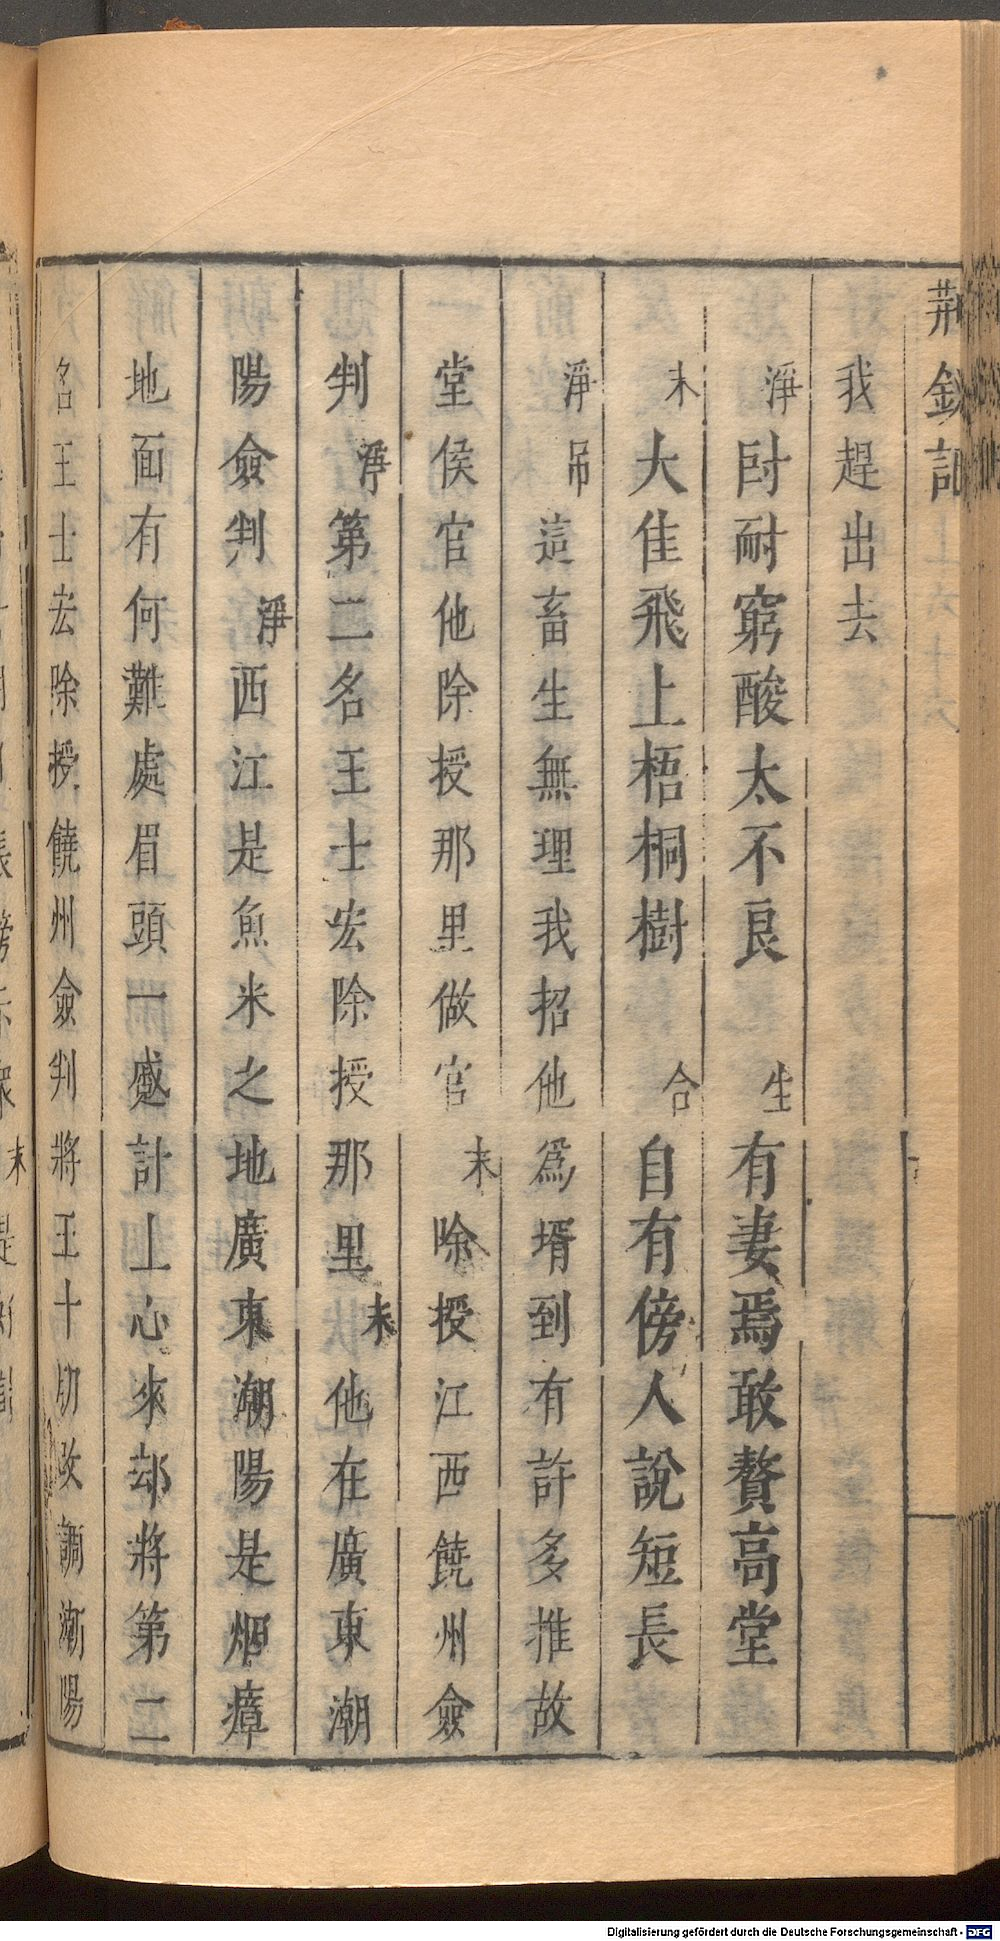 荆釵記
我趕出去
淨 尀耐窮酸太不良 生 有妻焉敢贅高堂
末 大佳飛上梧桐樹 合 自有傍人說短長
淨 吊 這畜生無理我招他為壻到有許多推故
堂侯官他除授那里做官 末 除授江西饒州僉
判 淨 第二名王士宏除授那里 末 他在廣東潮
陽僉判 淨 西江是魚米之地廣東潮陽是烟瘴
地面有何難處眉頭一蹙計上心來却將第二
名王士宏除授饒州僉判將王十朋改調潮陽
Digitalisierung gefördert durch die Deutsche Forschungsgemeinschaft - DFG